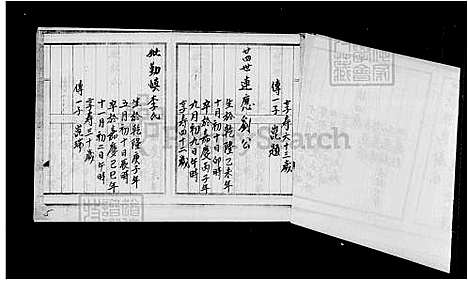 享壽六十三歲
傳一子 崑題
廿四世 連應劍公
生於乾隆乙未年
十月初十日卯時
卒於嘉慶丙子年
九月初九日午時
享壽四十二歲
妣勤慎李氏
生於乾隆庚子年
五月初十日辰時
卒於嘉慶己巳年
十月初二日午時
享壽三十歲
傳一子 崑瑞
Search
5